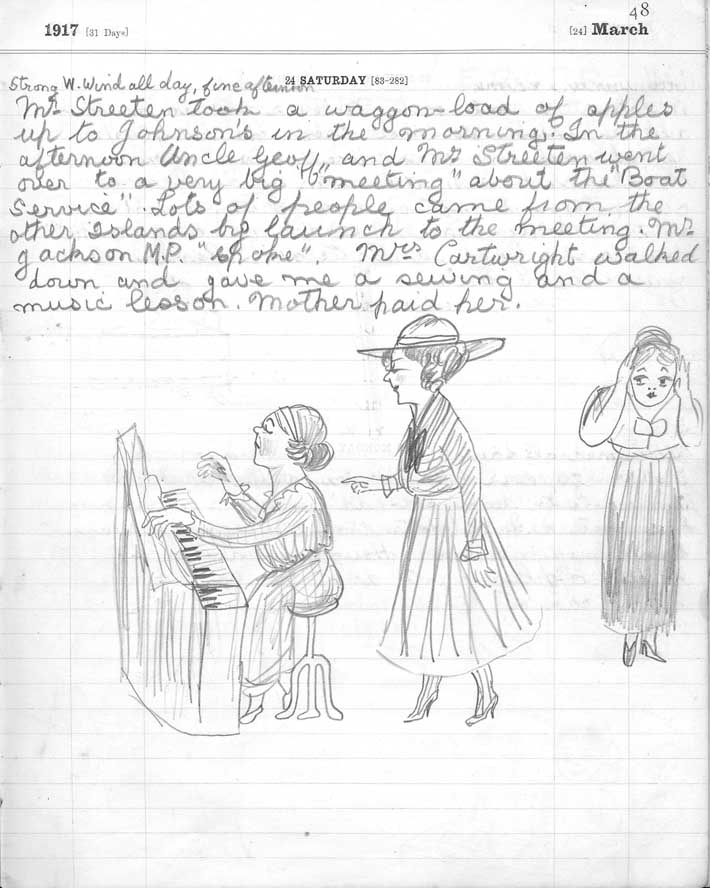 48
1917 [31 Days] [24] March
24 SATURDAY [83-282]
Strong W. Wind all day, fine afternoon
Mr Streeten took a waggon-load of apples
up to Johnson's in the morning. In the
afternoon Uncle Geoff, and Mr Streeten went
over to a very big "meeting" about the "Boat
Service". Lots of people came from the
other Islands by launch to the meeting. Mr
Jackson M.P. "spoke". Mrs Cartwright walked
down and gave me a sewing and a
music lesson. Mother paid her.